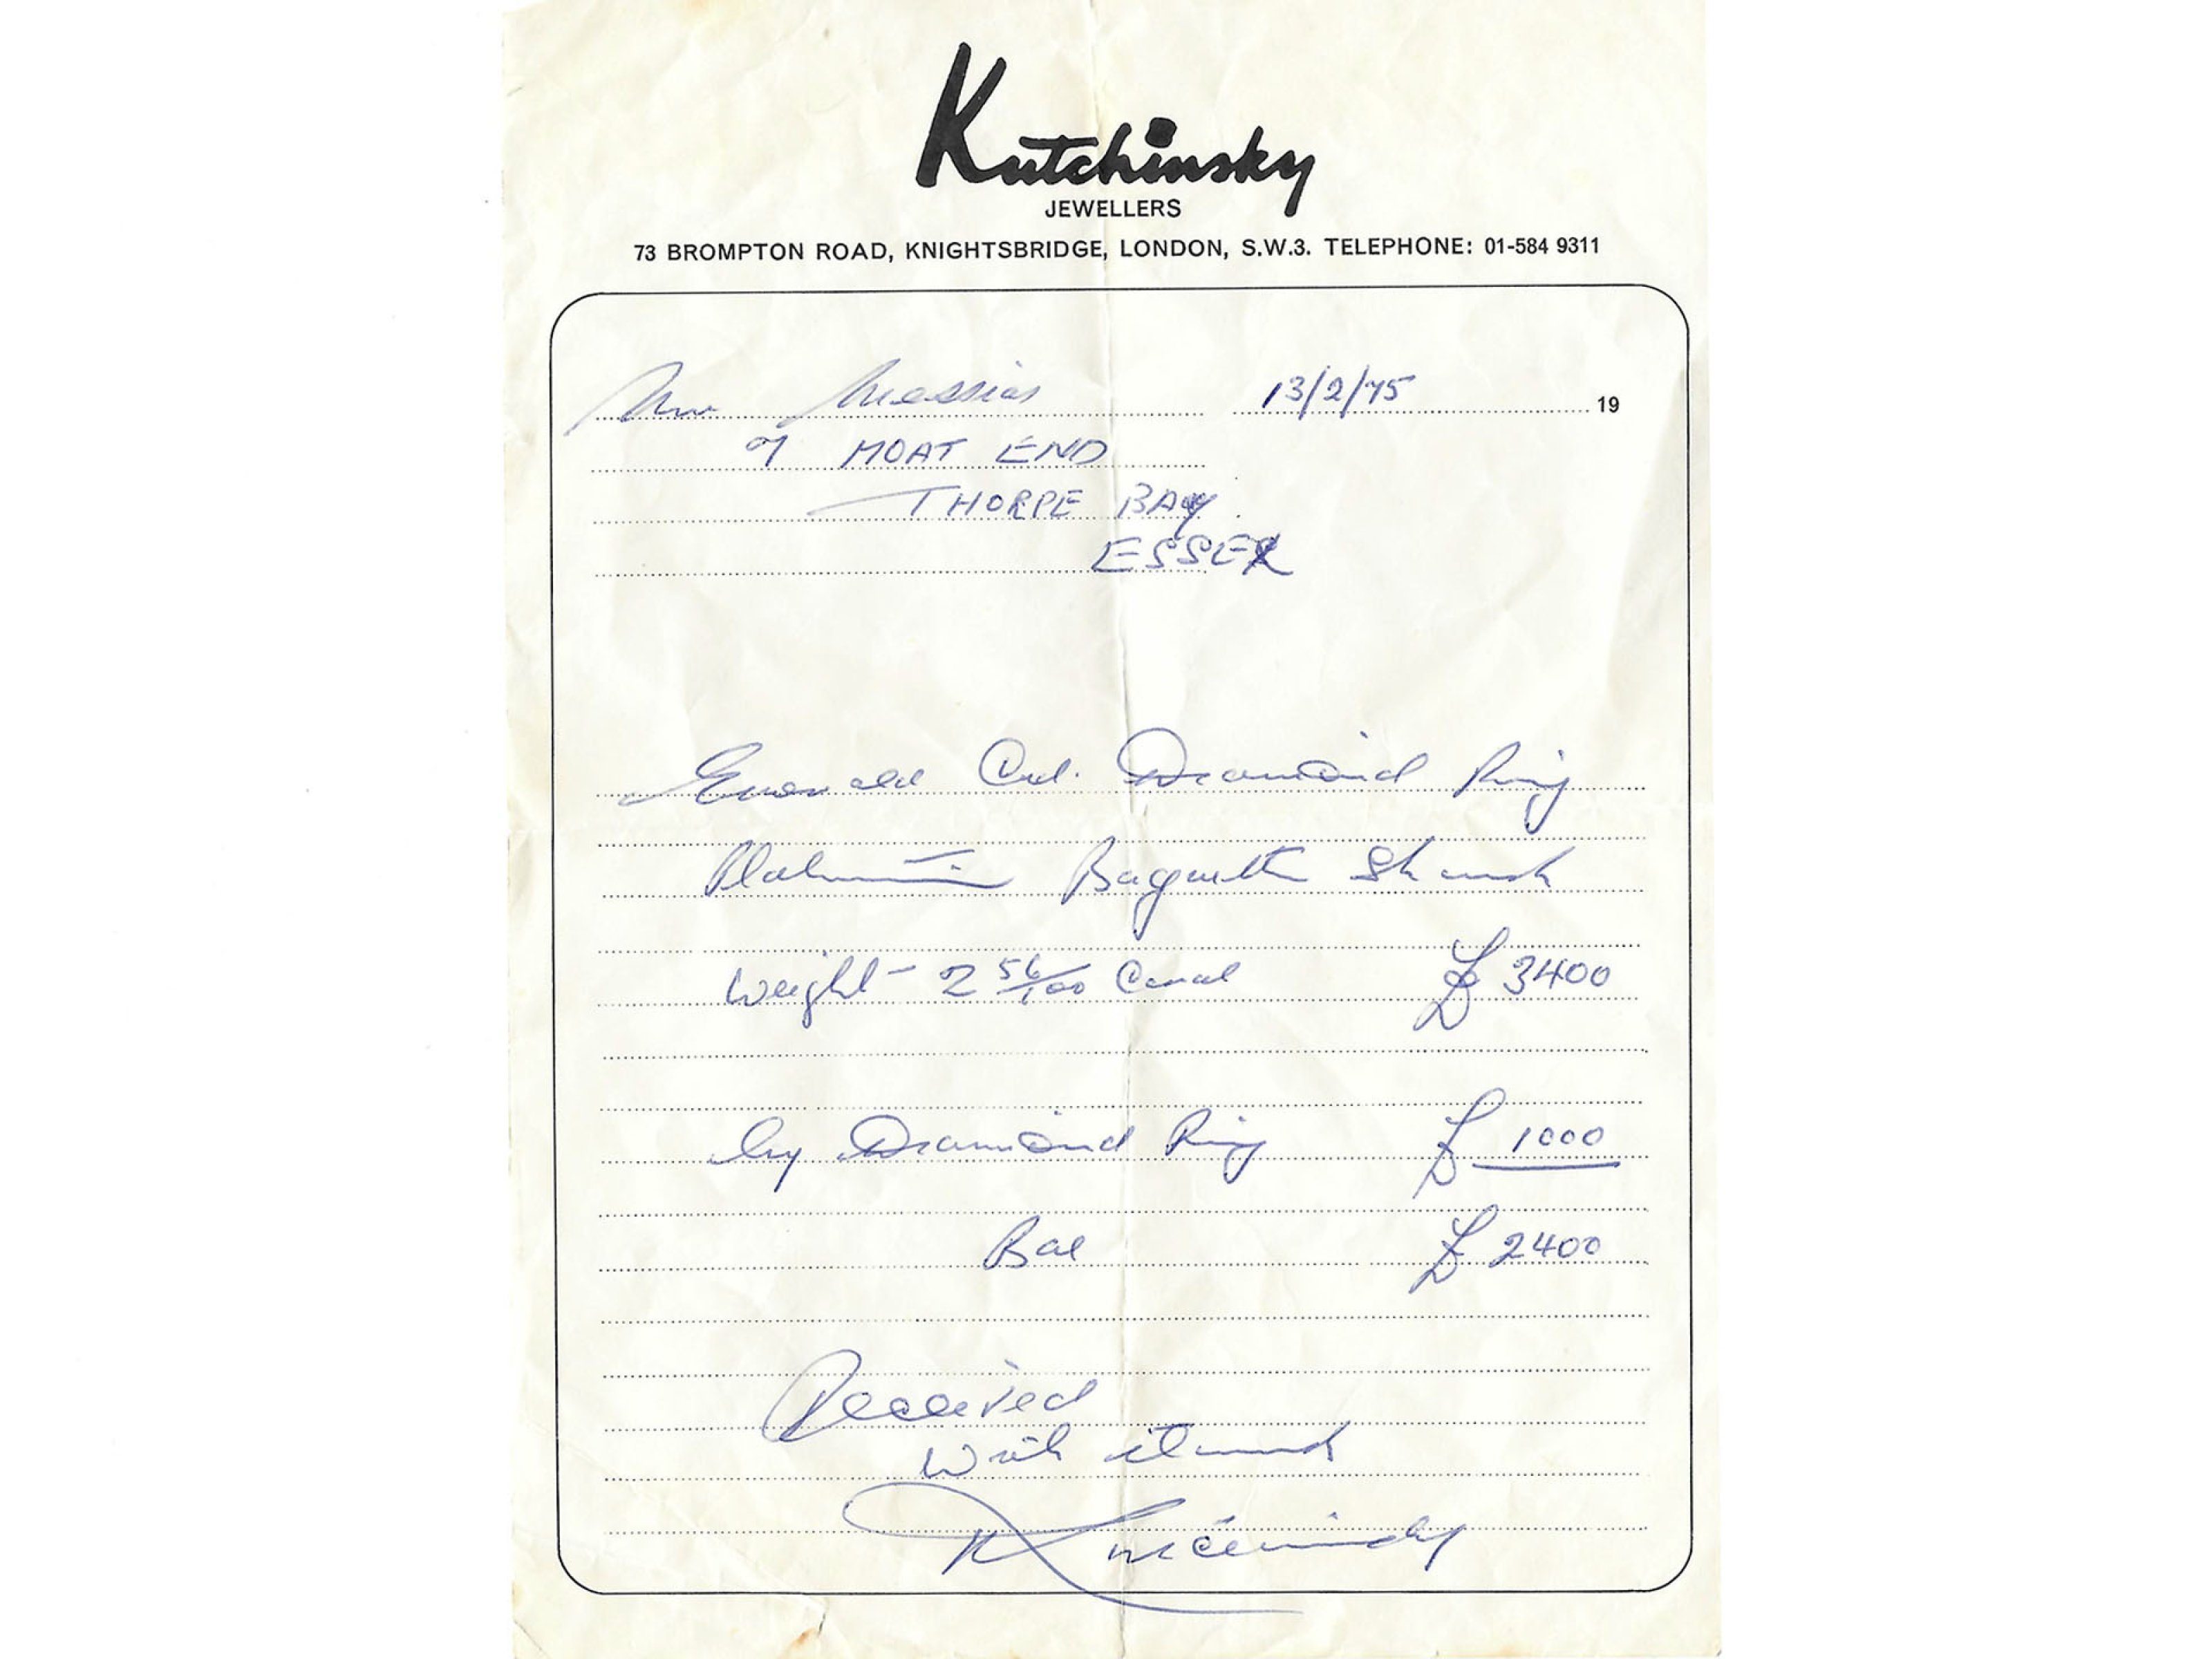 Kutchinsky
JEWELLERS
73 BROMPTON ROAD, KNIGHTSBRIDGE, LONDON, S.W.3. TELEPHONE: 01-584 9311
Messias 13/2/75 19
MOAT END
THORPE BAY
ESSEX
Emerald Cut Diamond Ring
Platinum Baguette Shank
Weight - 2 56/100 Carat £ 3400
by Diamond Ring £ 1000
Bal £ 2400
Received
with thanks
Kutchinsky